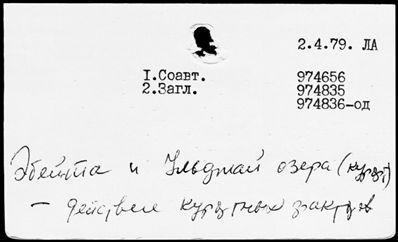 2.4.79. ЛА
1.Соавт. 974656
2.Загл. 974835
974836-од
Эбейта и Ульджай озера (кург)
— действие курортных факторов